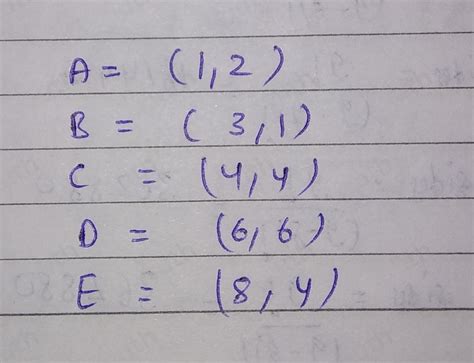 A = (1,2)
B = (3,1)
C = (4,4)
D = (6,6)
E = (8,4)